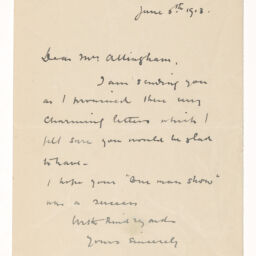 June 5th 1913.
Dear Mrs Allingham,
I am sending you
as I promised these very
charming letters which I
felt sure you would be glad
to have -
I hope your "One man show"
was a success
With kind regards
Yours sincerely